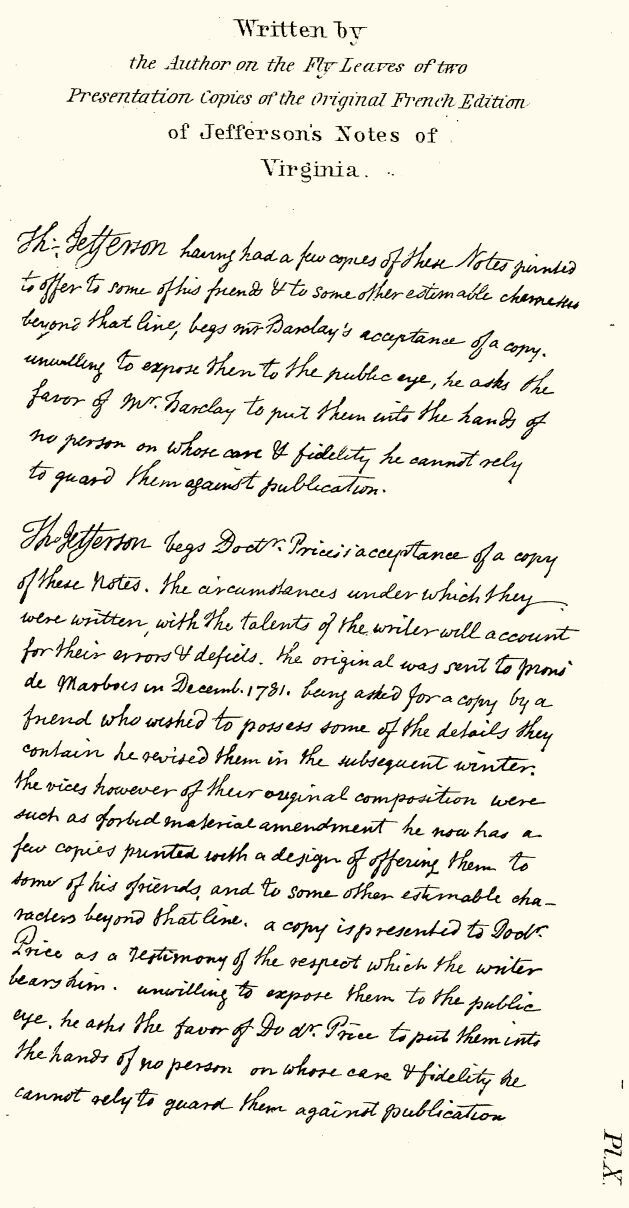 Written by
the Author on the Fly Leaves of two
Presentation Copies of the Original French Edition
of Jefferson's Notes of
Virginia.
Th: Jefferson having had a few copies of these Notes printed
to offer to some of his friends & to some other estimable characters
beyond that line, begs mr Barclay's acceptance of a copy.
unwilling to expose them to the public eye, he asks the
favor of Mr. Barclay to put them into the hands of
no person on whose care & fidelity he cannot rely
to guard them against publication.
Th: Jefferson begs Doctr. Price's acceptance of a copy
of these Notes. the circumstances under which they
were written, with the talents of the writer will account
for their errors & defects. the original was sent to Monsr
de Marbois in Decemb. 1781. being asked for a copy by a
friend who wished to possess some of the details they
contain he revised them in the subsequent winter.
the vices however of their original composition were
such as forbid material amendment he now has a
few copies printed with a design of offering them to
some of his friends, and to some other estimable cha-
racters beyond that line. a copy is presented to Doctr.
Price as a testimony of the respect which the writer
bears him. unwilling to expose them to the public
eye, he asks the favor of Doctr. Price to put them into
the hands of no person on whose care & fidelity he
cannot rely to guard them against publication
Pl.X.